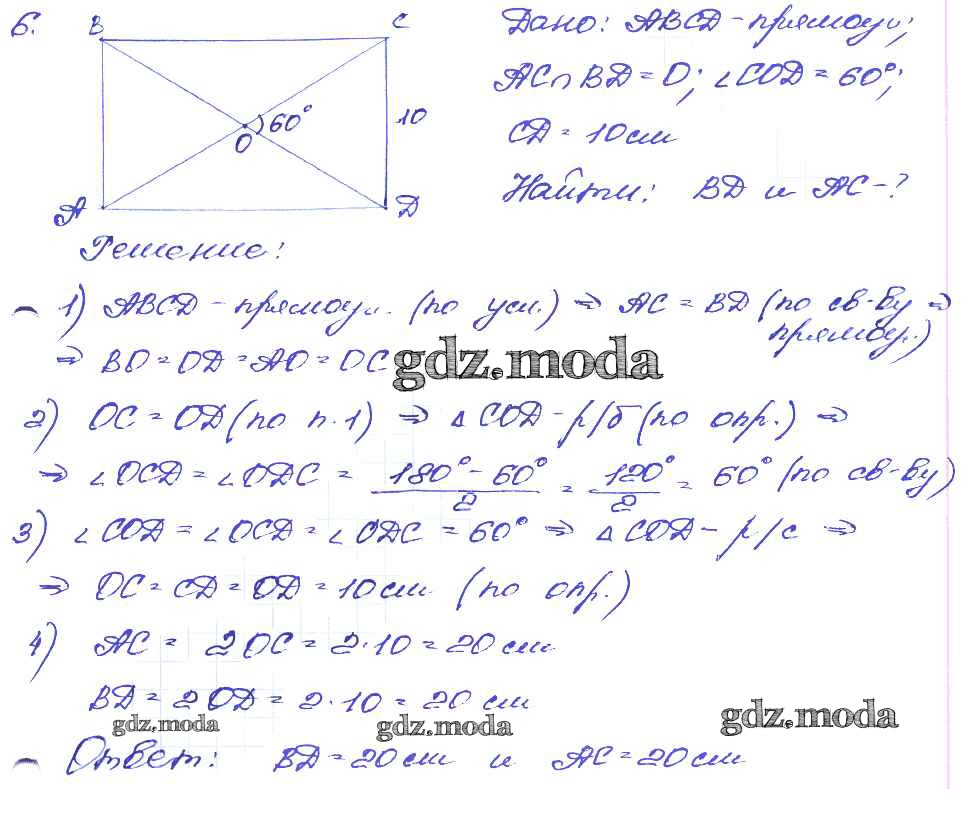 6.
B C
60°
O
10
A D
Дано: ABCD - прямоуг;
AC ∩ BD = O; ∠COD = 60°;
CD = 10 см
Найти: BD и AC - ?
Решение:
1) ABCD - прямоуг. (по усл.) ⇒ AC = BD (по св-ву прямоуг.) ⇒
⇒ BO = OD = AO = OC
gdz.moda
2) OC = OD (по п.1) ⇒ △COD - р/б (по опр.) ⇒
⇒ ∠OCD = ∠ODC = (180° - 60°)/2 = 120°/2 = 60° (по св-ву)
3) ∠COD = ∠OCD = ∠ODC = 60° ⇒ △COD - р/с ⇒
⇒ OC = CD = OD = 10 см (по опр.)
4) AC = 2OC = 2·10 = 20 см
BD = 2OD = 2·10 = 20 см
gdz.moda gdz.moda gdz.moda
Ответ: BD = 20 см и AC = 20 см